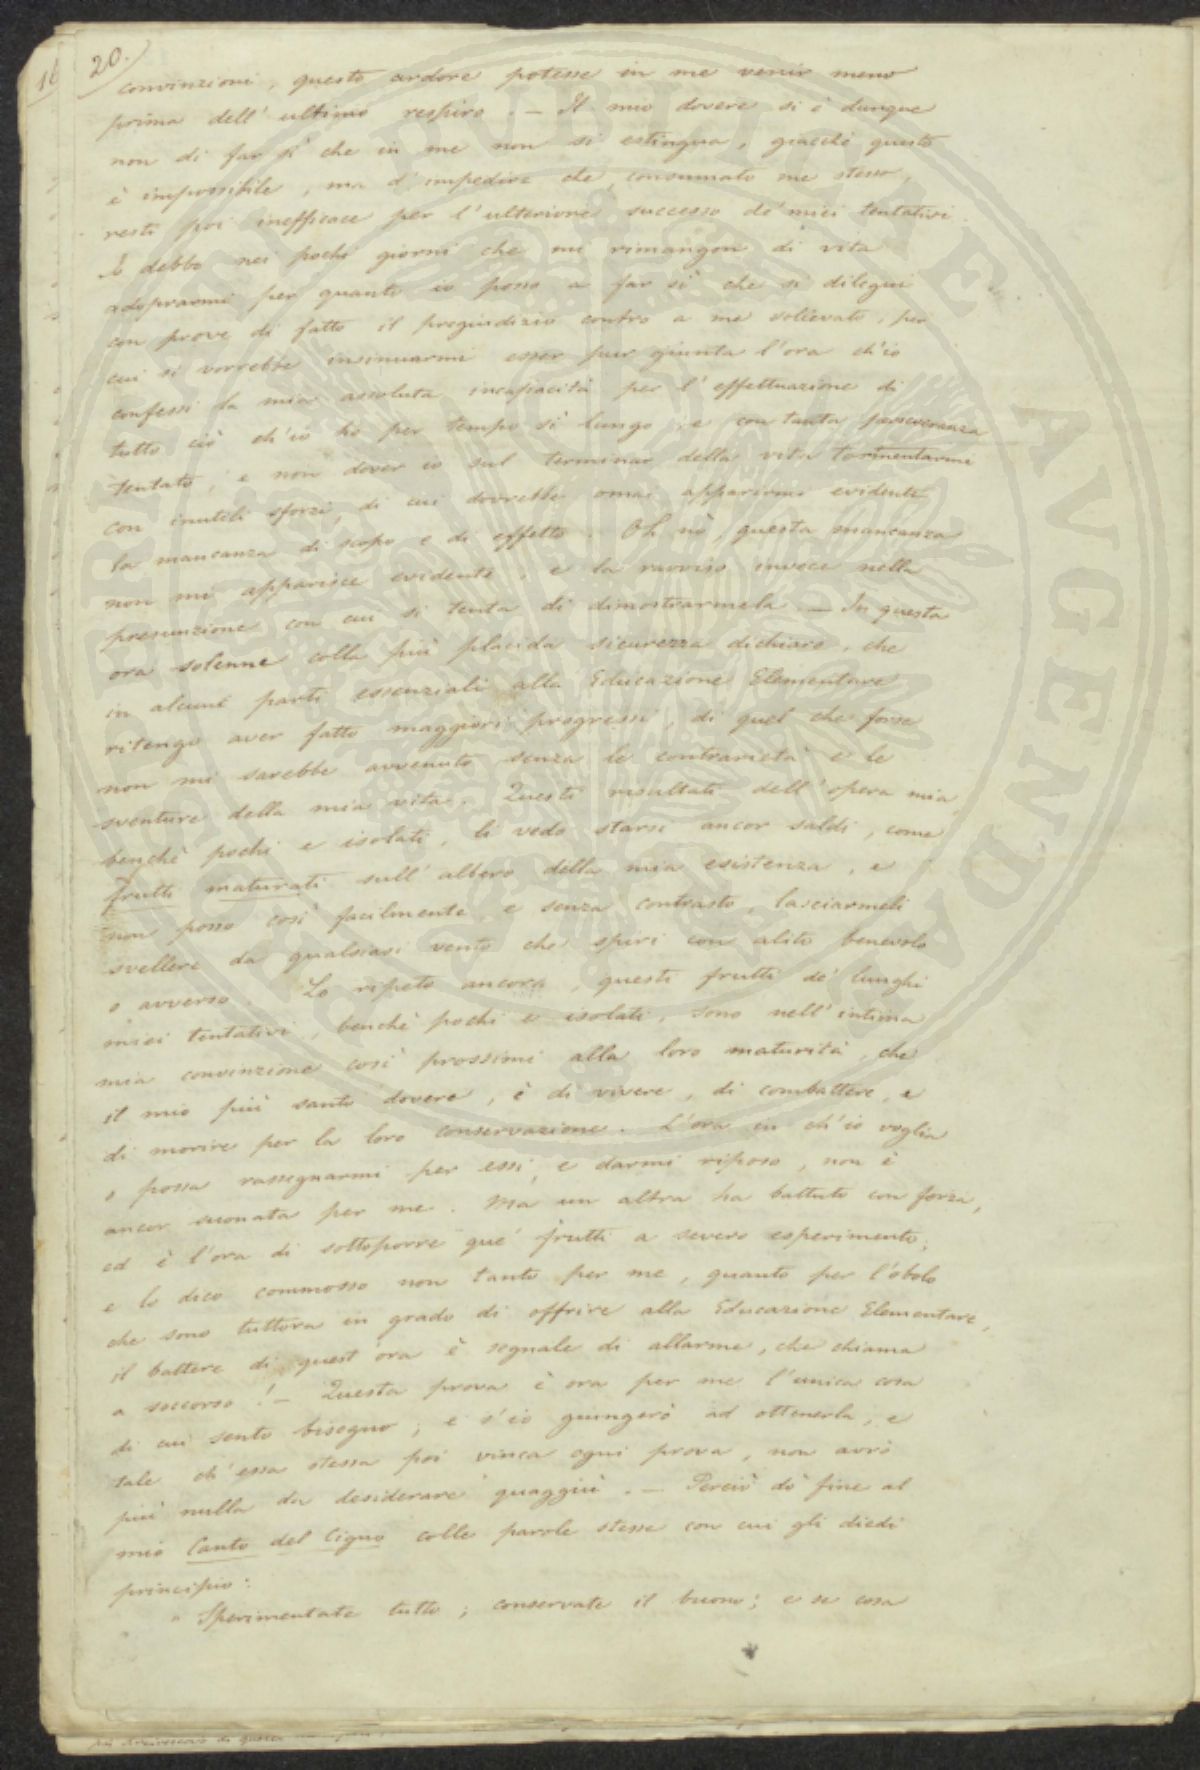 16
20.
convinzioni, questo ardore potesse in me venir meno
prima dell' ultimo respiro. — Il mio dovere si è dunque
non di far sì che in me non si estingua, giacchè questo
è impossibile, ma d' impedire che, consumato me stesso,
resti poi inefficace per l' ulteriore successo de' miei tentativi.
Io debbo nei pochi giorni che mi rimangon di vita
adoprarmi per quanto io posso a far sì che si dilegui
con prove di fatto il pregiudizio contro a me sollevato, per
cui si vorrebbe insinuarmi esser pur giunta l' ora ch'io
confessi la mia assoluta incapacità per l' effettuazione di
tutto ciò ch'io ho per tempo sì lungo e con tanta perseveranza
tentato, e non dover io sul terminar della vita tormentarmi
con inutili sforzi, di cui dovrebbe omai apparirmi evidente
la mancanza di scopo e di effetto. Oh nò, questa mancanza
non mi apparisce evidente, e la ravviso invece nella
presunzione con cui si tenta di dimostrarmela. — In questa
ora solenne colla più placida sicurezza dichiaro, che
in alcune parti essenziali alla Educazione Elementare
ritengo aver fatto maggiori progressi, di quel che forse
non mi sarebbe avvenuto senza le contrarietà e le
sventure della mia vita. Questi risultati dell' opera mia,
benchè pochi e isolati, li vedo starsi ancor saldi, come
frutti maturati sull' albero della mia esistenza, e
non posso così facilmente e senza contrasto, lasciarmeli
svellere da qualsiasi vento che spiri con alito benevolo
o avverso. Lo ripeto ancora, questi frutti de' lunghi
miei tentativi, benchè pochi e isolati, sono nell' intima
mia convinzione così prossimi alla loro maturità, che
il mio più santo dovere, è di vivere, di combattere, e
di morire per la loro conservazione. L'ora in ch'io voglia
o possa rassegnarmi per essi, e darmi riposo, non è
ancor suonata per me. Ma un altra ha battuto con forza,
ed è l'ora di sottoporre que' frutti a severo esperimento;
e lo dico commosso non tanto per me, quanto per l'obolo
che sono tuttora in grado di offrire alla Educazione Elementare,
il battere di quest' ora è segnale di allarme, che chiama
a soccorso! — Questa prova è ora per me l'unica cosa
di cui sento bisogno; e s'io giungerò ad ottenerla, e
tale ch' essa stessa poi vinca ogni prova, non avrò
più nulla da desiderare quaggiù. — Perciò dò fine al
mio Canto del Cigno colle parole stesse con cui gli diedi
principio:
" Sperimentate tutto; conservate il buono; e se cosa